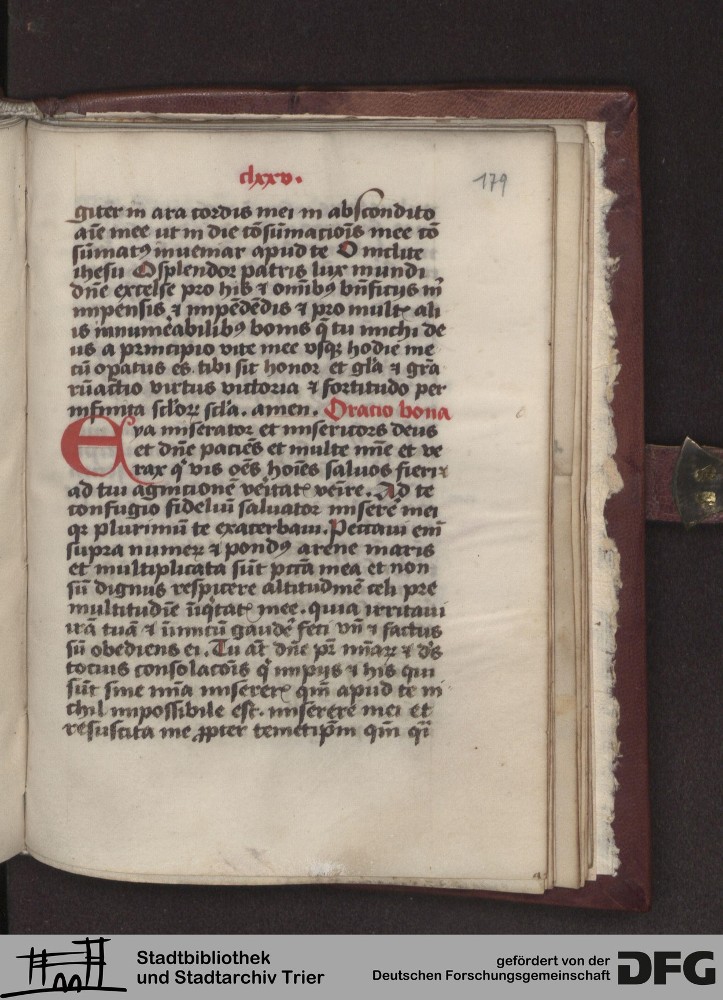 clxxv.
179
giter in ara cordis mei in abscondito
aīe mee ut in die cōsūmacioīs mee cō
sūmatꝰ inueniar apud te O inclite
ihesu O splendor patris lux mundi
dn̄e excelse pro his et om̄ibꝰ bn̄ficijs m̄
impensis et impēdēdis et pro multꝭ ali
is innumeabilibꝰ bonis q̄ tu michi de
us a principio vite mee vsqꝫ hodie me
cū opatus es tibi sit honor et gl'a et gr̄a
rūactio virtus victoria et fortitudo per
infinita scl'oꝝ scl'a. amen. Oratio bona
Eya miserator et misericors deus
et dn̄e paciēs et multe mīe et ve
rax qͥ vis oēs hoīes saluos fieri et
ad tui agnicionē veritatꝭ veīre. Ad te
confugio fideliū saluator miserē mei
qꝛ plurimū te exacerbaui. Peccaui em̄
supra numeꝝ et pondꝰ arene maris
et multiplicata sūt pcc̄a mea et non
sū dignus respicere altitudinē celi pre
multitudīe īiqͥtatꝭ mee. quia irritaui
irā tuā et
gaudē feci
et factus
sū obediens ei. Tu at̄ dn̄e pr̄ mīaꝝ et d's
tocius consolacōis qͥ impijs et his qui
sūt sine mīa misererꝭ qm̄ apud te ni
chil impossibile est. miserere mei et
resuscita me ꝓpter temetip̄m qm̄ qͥ
Stadtbibliothek
und Stadtarchiv Trier
gefördert von der
Deutschen Forschungsgemeinschaft
DFG